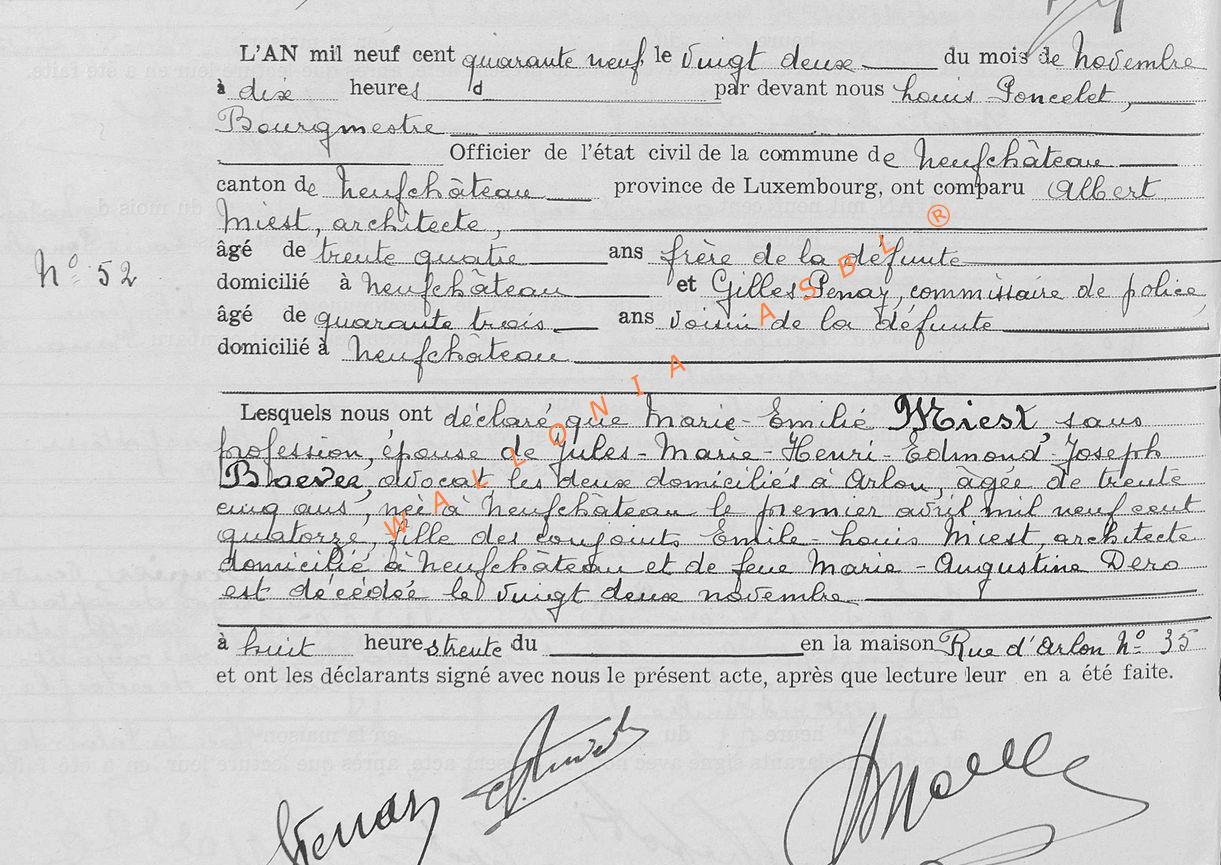 L'AN mil neuf cent quarante neuf, le vingt deux du mois de Novembre
à dix heures par devant nous Louis Poncelet,
Bourgmestre
Officier de l'état civil de la commune de Neufchâteau
canton de Neufchâteau province de Luxembourg, ont comparu Albert
Miest, architecte,
âgé de trente quatre ans frère de la défunte
N° 52
domicilié à Neufchâteau et Gilles Penay, commissaire de police,
âgé de quarante trois ans voisin de la défunte
domicilié à Neufchateau
Lesquels nous ont déclaré que Marie-Emilie Miest, sans
profession, épouse de Jules-Marie-Henri-Edmond-Joseph
avocat les deux domiciliés à Arlon, âgée de trente
cinq ans, née à Neufchâteau le premier avril mil neuf cent
quatorze, fille des conjoints Emile-Louis Miest, architecte
domicilié à Neufchâteau et de feue Marie-Augustine Dero
est décédée le vingt deux novembre
à huit heures trente du en la maison Rue d'Arlon N° 35
et ont les déclarants signé avec nous le présent acte, après que lecture leur en a été faite.
WALLONIA ASBL ®